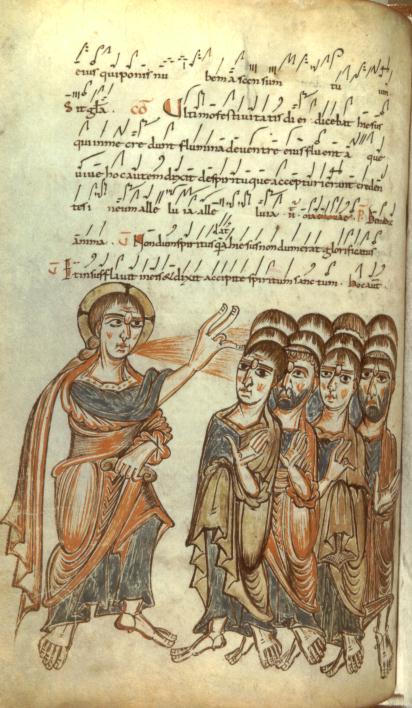 eius qui ponis nu bem ascensum tu um
Sit gła. cō Ultimo festivitatis diei dicebat iħesus
qui in me credunt flumina de ventre eius fluent aque
vive hoc autem dixit de spiritu que accepturi erunt creden
tes i neum alle lu ia alle luia
anima. Nondum spiritus iħesus nondum erat glorificatus
Et insufflavit iħesus & dixit accipite spiritum sanctum. hoc aut